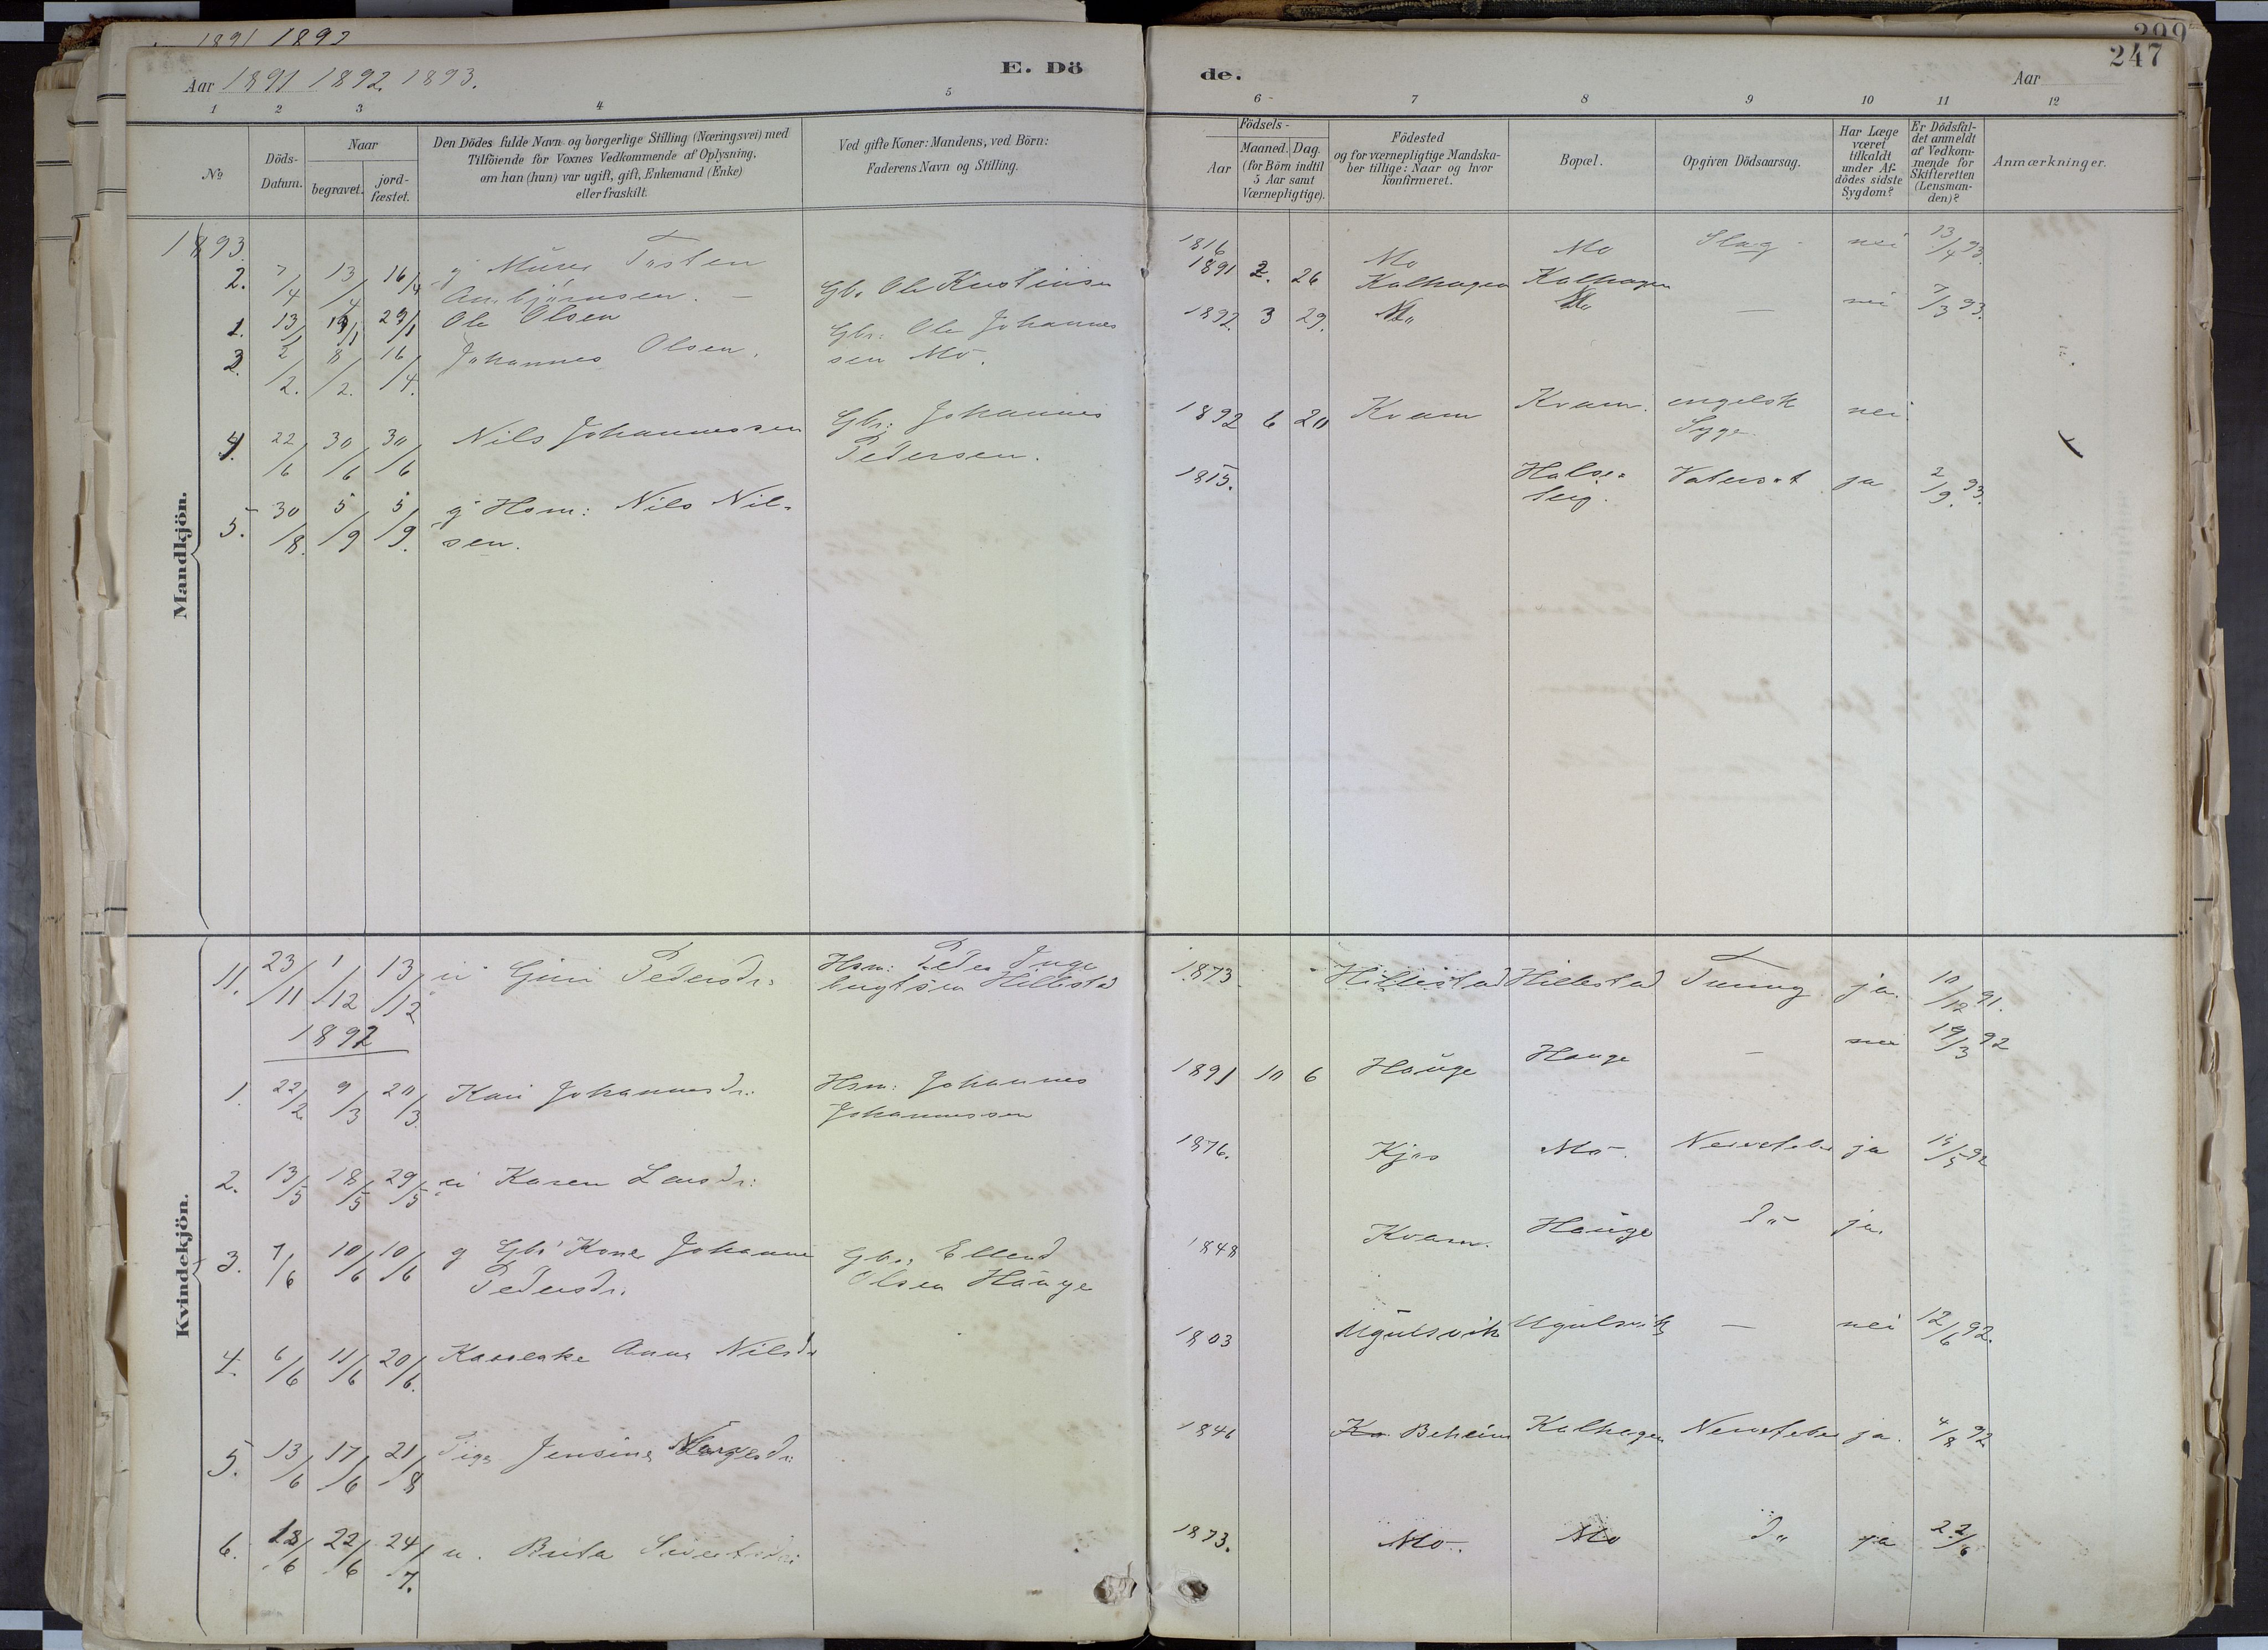 1891 1892
299
247
Aar 1891 1892. 1893.
E. Dö
de.
Aar
1 2 3 4 5 6 7 8 9 10 11 12
No
Döds-
Datum.
Naar
begravet.
jord-
fæstet.
Den Dödes fulde Navn og borgerlige Stilling (Næringsvei) med
Tilföiende for Voxnes Vedkommende af Oplysning,
om han (hun) var ugift, gift, Enkemand (Enke)
eller fraskilt.
Ved gifte Koner: Mandens, ved Börn:
Faderens Navn og Stilling.
Födsels-
Aar
Maaned. Dag.
(for Börn indtil
5 Aar samt
Værnepligtige).
Födested
og for værnepligtige Mandska-
ber tillige: Naar og hvor
konfirmeret.
Bopæl.
Opgiven Dödsaarsag.
Har Læge
været
tilkaldt
under Af-
dödes sidste
Sygdom?
Er Dödsfal-
det anmeldt
af Vedkom-
mende for
Skifteretten
(Lensman-
den)?
Anmærkninger.
Mandkjön.
1893.
2. 7/4 13/4 16/4 g Murer Tosten 1816 Mo Mo Slag nei 13/4 93.
Ambjörnsen. —
1. 13/1 19/1 29/1 Ole Olsen Gbr Ole Kristensen 1891 2. 26 Kalhagen Kalhagen
3. 2/2. 8/2. 16/4. Johannes Olsen. Gbr: Ole Johannes 1892. 3 29. Mo Mo — nei 7/3 93.
sen Mo.
4. 22/6 30/6 30/6 Nils Johannessen Gbr: Johannes 1892 6 20 Kvam Kvam. engelsk nei
Pedersen. Syge.
5. 30/8. 5/9 5/9. g Hsm: Nils Nil- 1815. Halse- Vatersot ja 2/9. 93.
sen. berg.
Kvindekjön.
11. 23/11 1/12 13/12 u Guri Pedersdr: Hsm: Peder Inge 1873 Hillestad Hillestad Tæring ja. 10/12 91.
brigtsen Hillestad
1892
1. 22/2. 9/3 20/3. Kari Johannesdr. Hsm: Johannes 1891 10 6 Hauge Hauge — nei 19/3 92
Johannessen
2. 13/5 18/5 29/5 u Karen Larsdr: 1876. Kjos Mo. Nervefeber ja 15/5 92
3. 7/6 10/6 10/6 g Gbr Kone Johanne Gbr. Ellend 1848 Kvam. Hauge do ja.
Pedersdr. Olsen Hauge
4. 6/6 11/6 20/6. Kaarenke Anna Nilsdr 1803 Ugulsvik Ugulsvik — nei 12/6 92.
5. 13/6 17/6 21/8 Pige Jensine 1846 Beheim Kalhagen Nervefeber ja. 4/8 92
6. 18/6 22/6 24/7. u. Brita Sivertsdr: 1873. Mo. Mo do ja 22/6